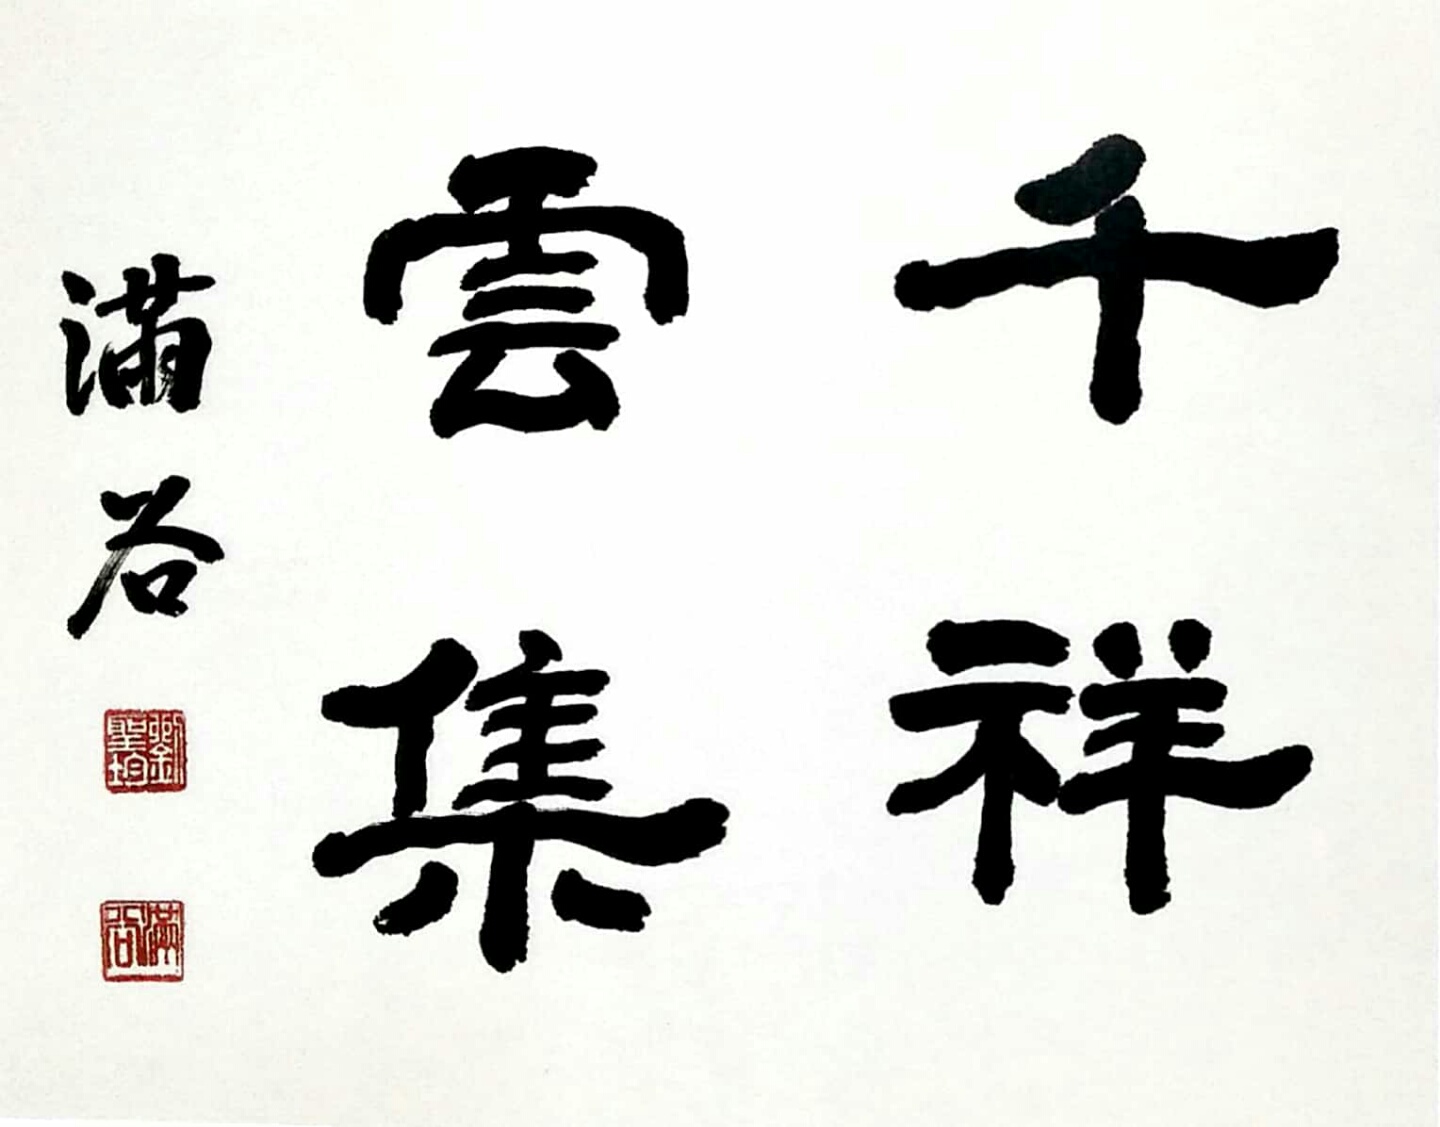 千祥
雲集
滿谷
劉聖
滿谷